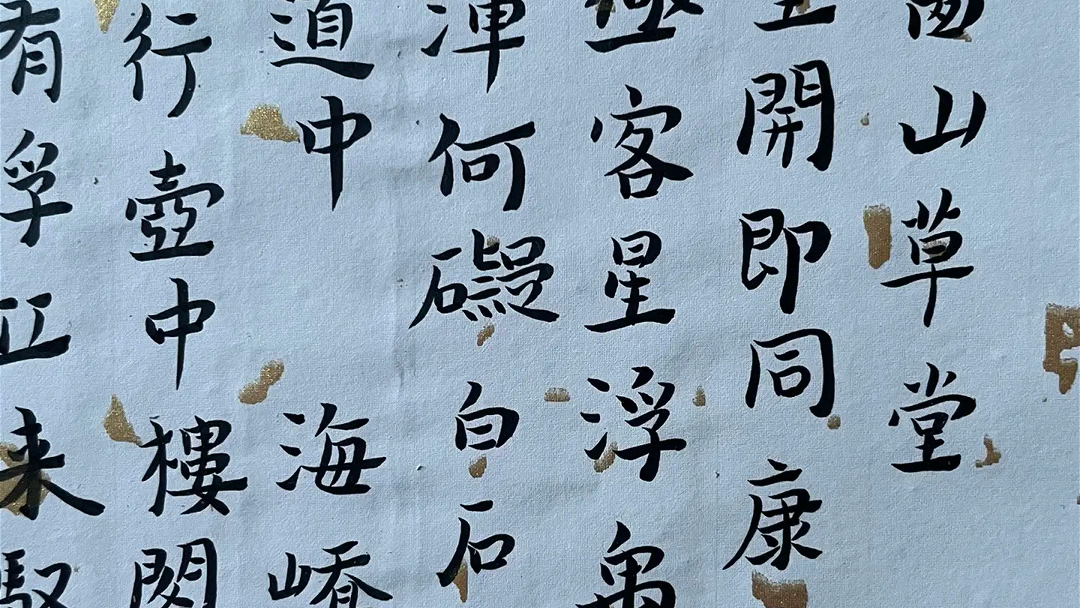 山草堂
開即同康
客星浮
渾何礙白石
道中海嶠
行壺中樓閣
有孚亚来馭